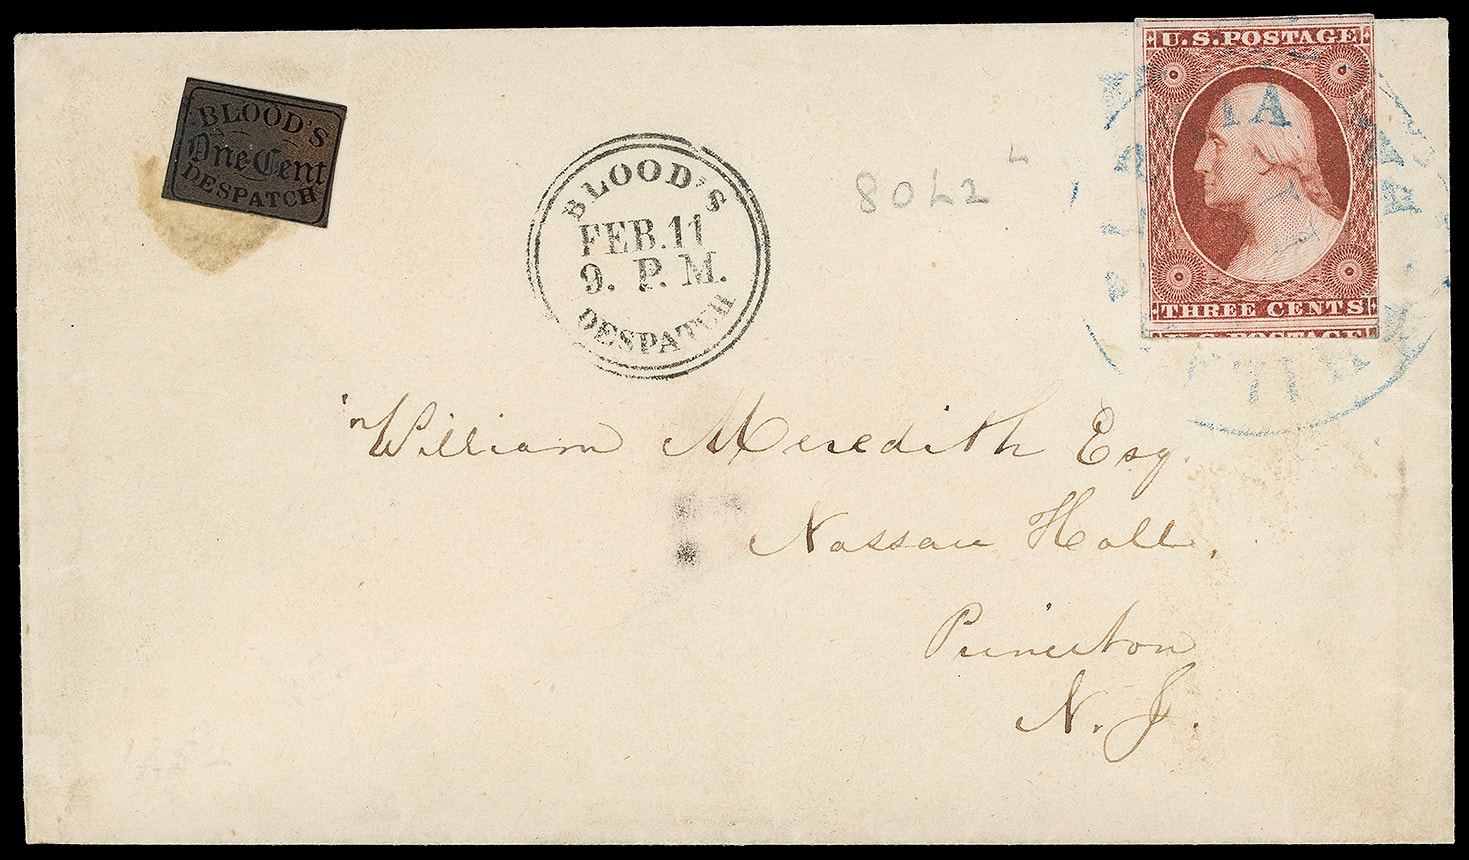 BLOOD'S
One Cent
DESPATCH
BLOOD'S
FEB. 11
9. P. M.
DESPATCH
80L2
L
U.S. POSTAGE
THREE CENTS
U.S. POSTAGE
William Meredith Esq.
Nassau Hall.
Princeton
N. J.